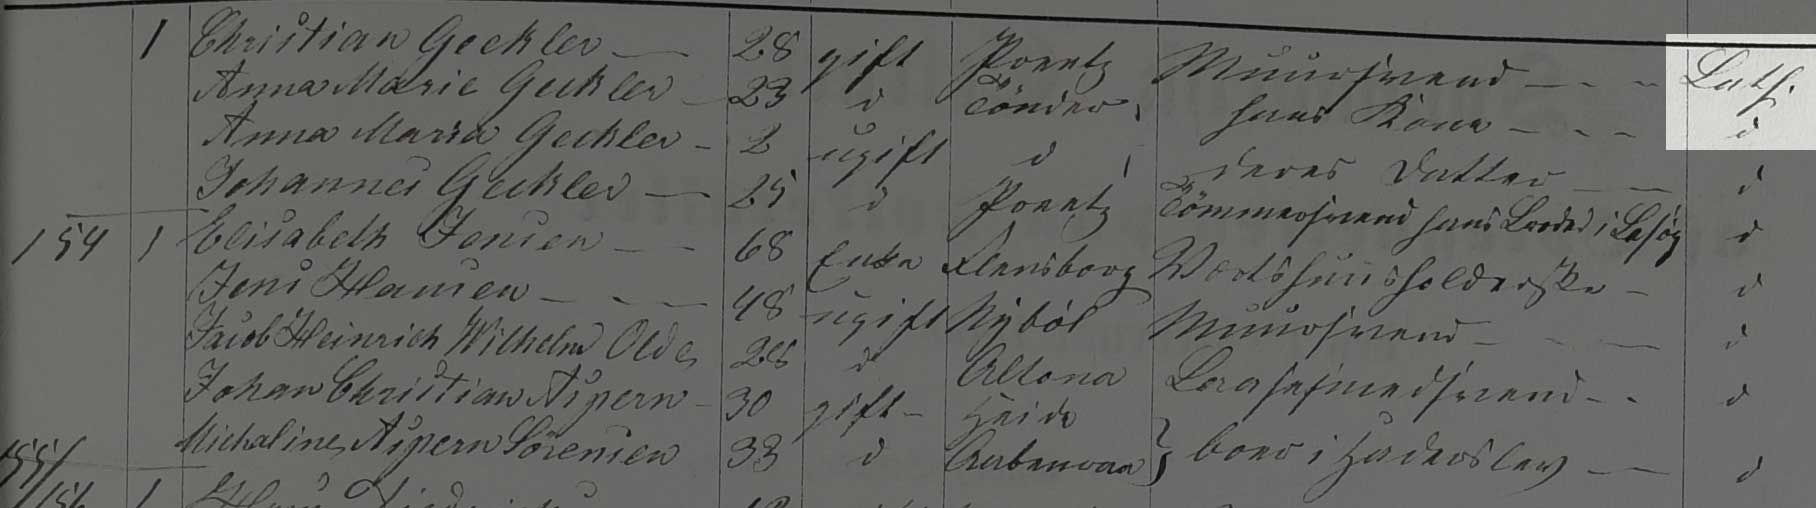 1 Christian Geckler 28 gift Preetz Muursvend Luth.
Anna Marie Geckler 23 d Tönder hans Kone d
Anna Maria Geckler 2 ugift d deres Datter d
Johannes Geckler 25 d Preetz Tömmersvend hans Broder i Besøg d
154 1 Elisabeth Jensen 68 Enke Flensborg Værtshuusholderske d
Jens Hansen 48 ugift Nÿböl Muursvend d
Jacob Heinrich Wilhelm Olde 28 d Altona d
Johan Christian Aspern 30 gift Heide d
155 Michaline Aspern Sörensen 33 d Aabenraa } boer i Haderslev d
156 1 Hans